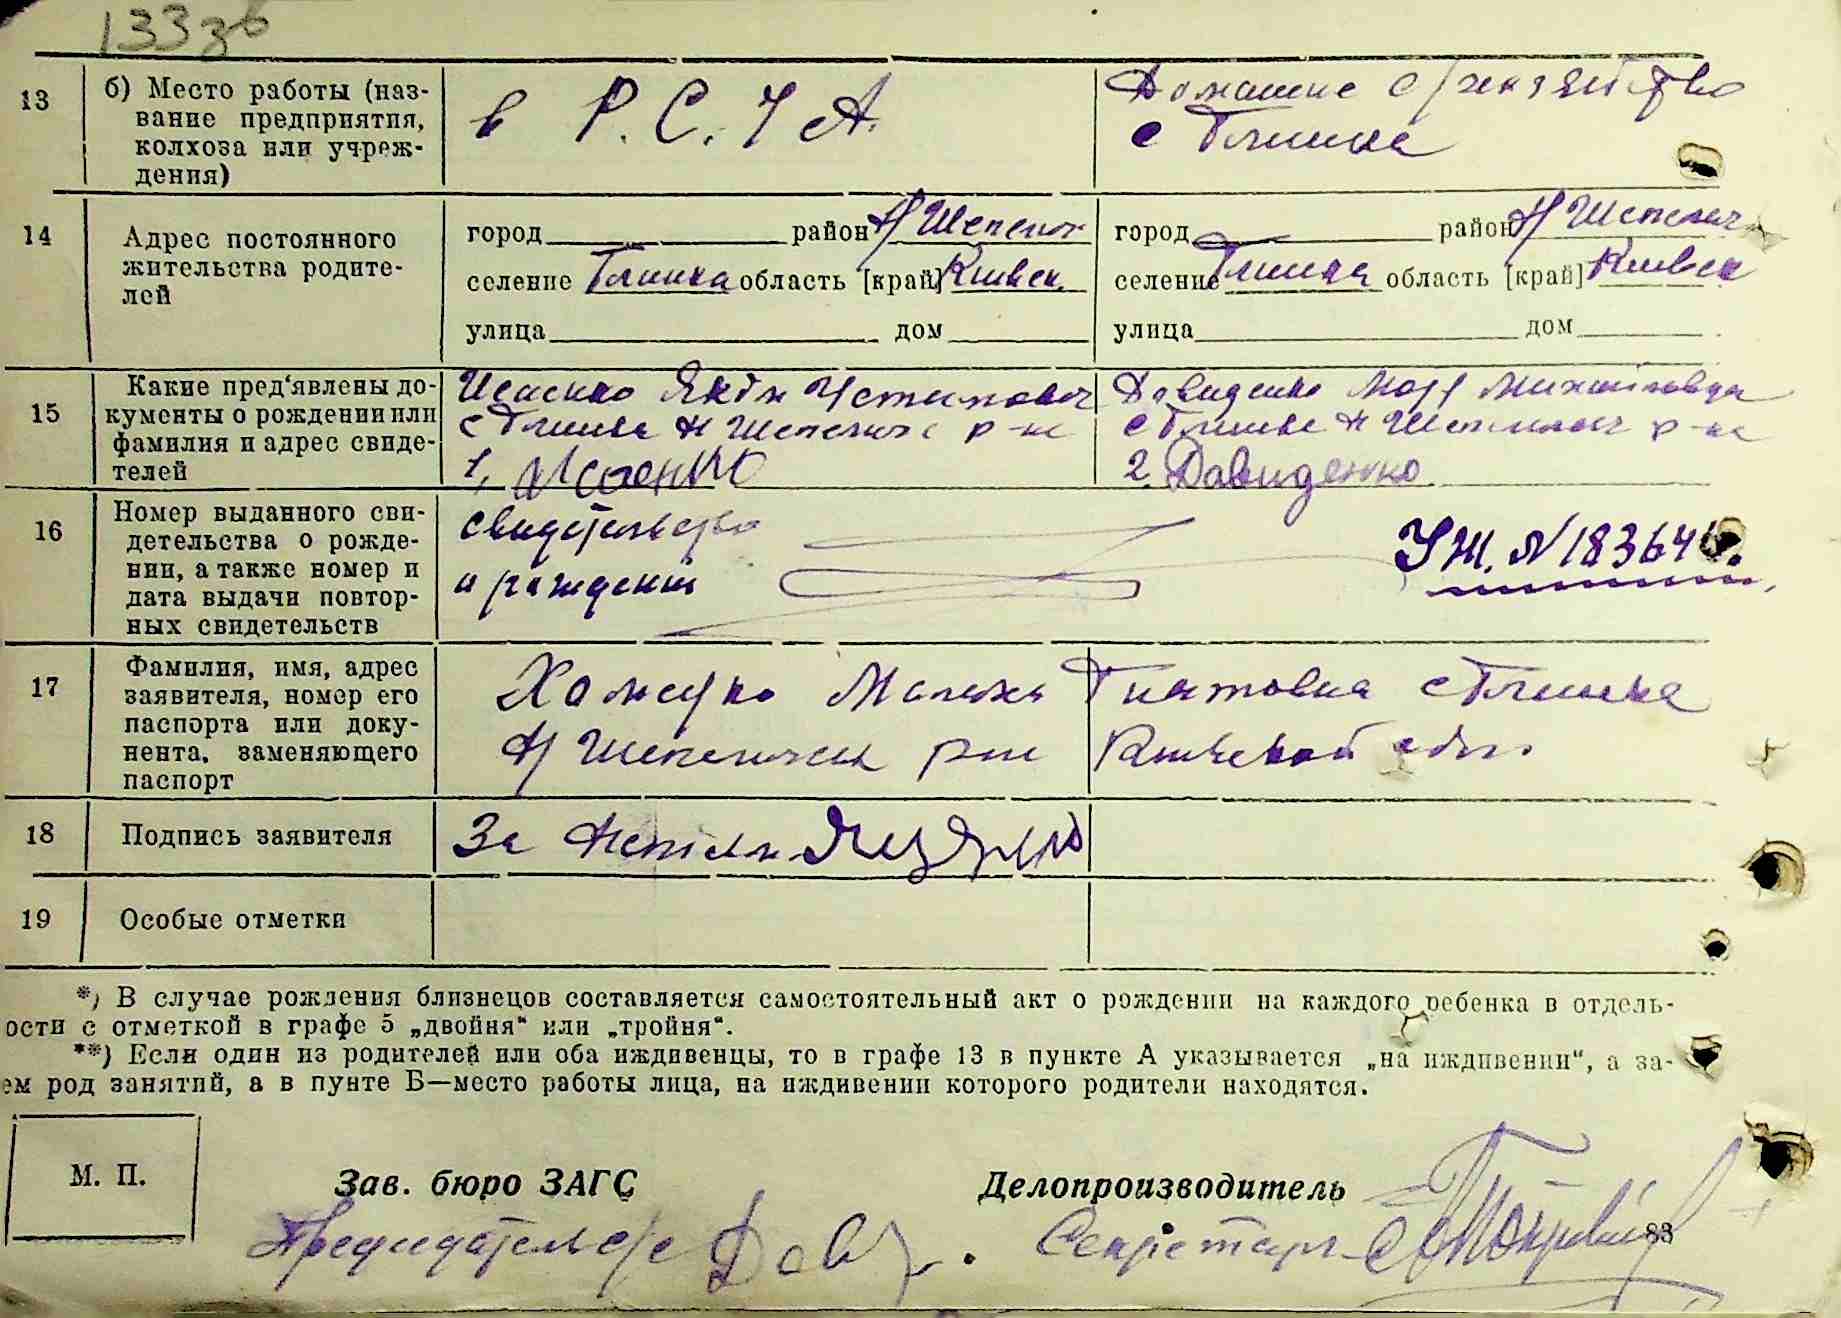 133зв
13
б) Место работы (наз-
вание предприятия,
колхоза или учреж-
дения)
в Р. С. Ч А.
Домашнє
с Глинка
14
Адрес постоянного
жительства родите-
лей
город район Н Шепелич
селение Глинка область [край] Киевск.
улица дом
город район Н Шепелич
селение Глинка область [край] Киевск
улица дом
15
Какие пред'явлены до-
кументы о рождении или
фамилия и адрес свиде-
телей
Исаенко Устинович
с Глинка Н Шепелич р-на
1, Исаенко
Давиденко Михайловна
с Глинка Н Шепелич р-на
2. Давиденко
16
Номер выданного сви-
детельства о рожде-
нии, а также номер и
дата выдачи повтор-
ных свидетельств
свидетельство
о рождении
УЖ. N 18364
17
Фамилия, имя, адрес
заявителя, номер его
паспорта или доку-
нента, заменяющего
паспорт
Игнатовна с Глинка
Н Шепелички Киевской обл.
18
Подпись заявителя
За
19
Особые отметки
*) В случае рождения близнецов составляется самостоятельный акт о рождении на каждого ребенка в отдель-
ости с отметкой в графе 5 „двойня“ или „тройня“.
**) Если один из родителей или оба иждивенцы, то в графе 13 в пункте А указывается „на иждивении“, а за-
ем род занятий, а в пунте Б—место работы лица, на иждивении которого родители находятся.
М. П.
Зав. бюро ЗАГС
Делопроизводитель
Председатель с/с Дав
Секретарь
83